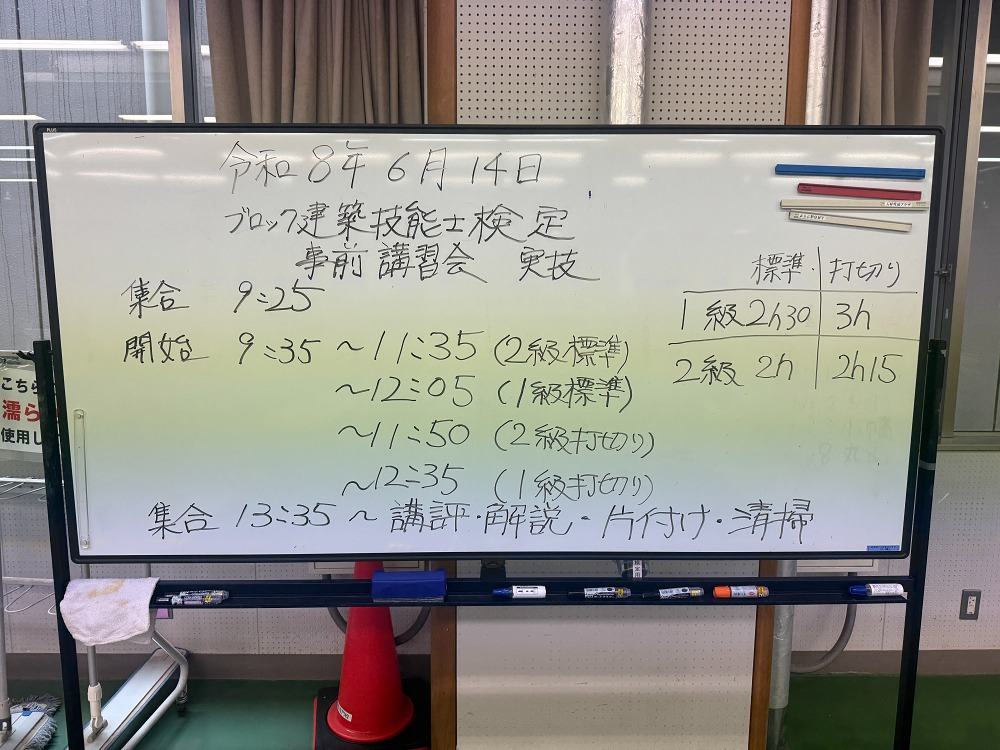 PLUS
令和8年 6月 14日
ブロック建築技能士検定
事前講習会 実技
集合 9:25
開始 9:35 〜11:35 (2級標準)
〜12:05 (1級標準)
〜11:50 (2級打切り)
〜12:35 (1級打切り)
集合 13:35 〜 講評・解説・片付け・清掃
標準・打切り
1級 2h30 3h
2級 2h 2h15
こちら
濡ら
使用し